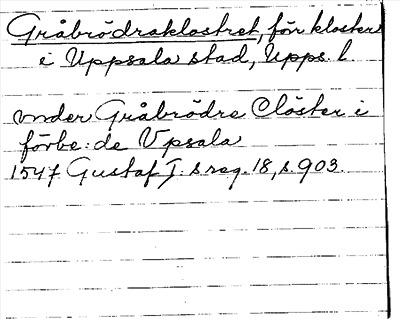 Gråbrödraklostret, förr kloster
i Uppsala stad, Upps. l.
vnder Gråbrödre Clöster i
förbe:de Vpsala
1547 Gustaf I:s reg. 18, s. 903.